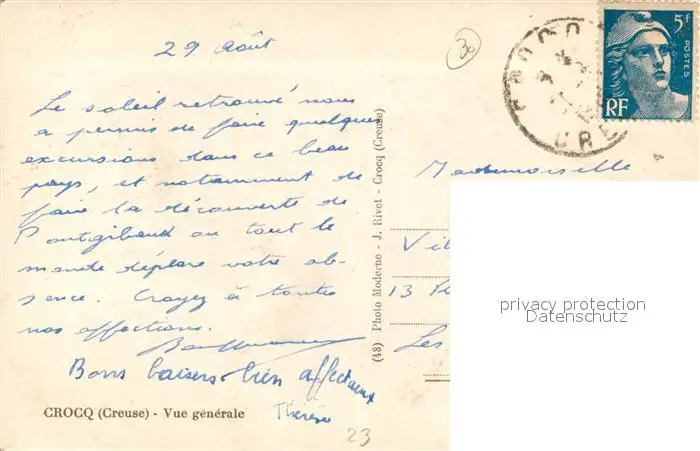 29 Août
30
5F
POSTES
RF
CROCQ
Le soleil retrouvé nous
a permis de faire quelques
excursions dans ce beau
pays, et notamment de
faire la découverte de
Pontgibaud ou tout le
monde déplore votre ab-
sence. Croyez à toutes
nos affections.
Bons baisers bien affectueux
Thérèse
CROCQ (Creuse) - Vue générale
23
(48) Photo Moderne - J. Rivet - Crocq (Creuse)
Mademoiselle
Vil
13
Les
privacy protection
Datenschutz